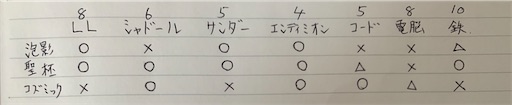 8 6 5 4 5 8 10
LL シャドール サンダー エンディミオン コード 電脳 鉄
泡影 ○ × ○ ○ × × △
聖杯 ○ ○ ○ ○ △ × ○
コズミック × ○ × ○ ○ △ ×